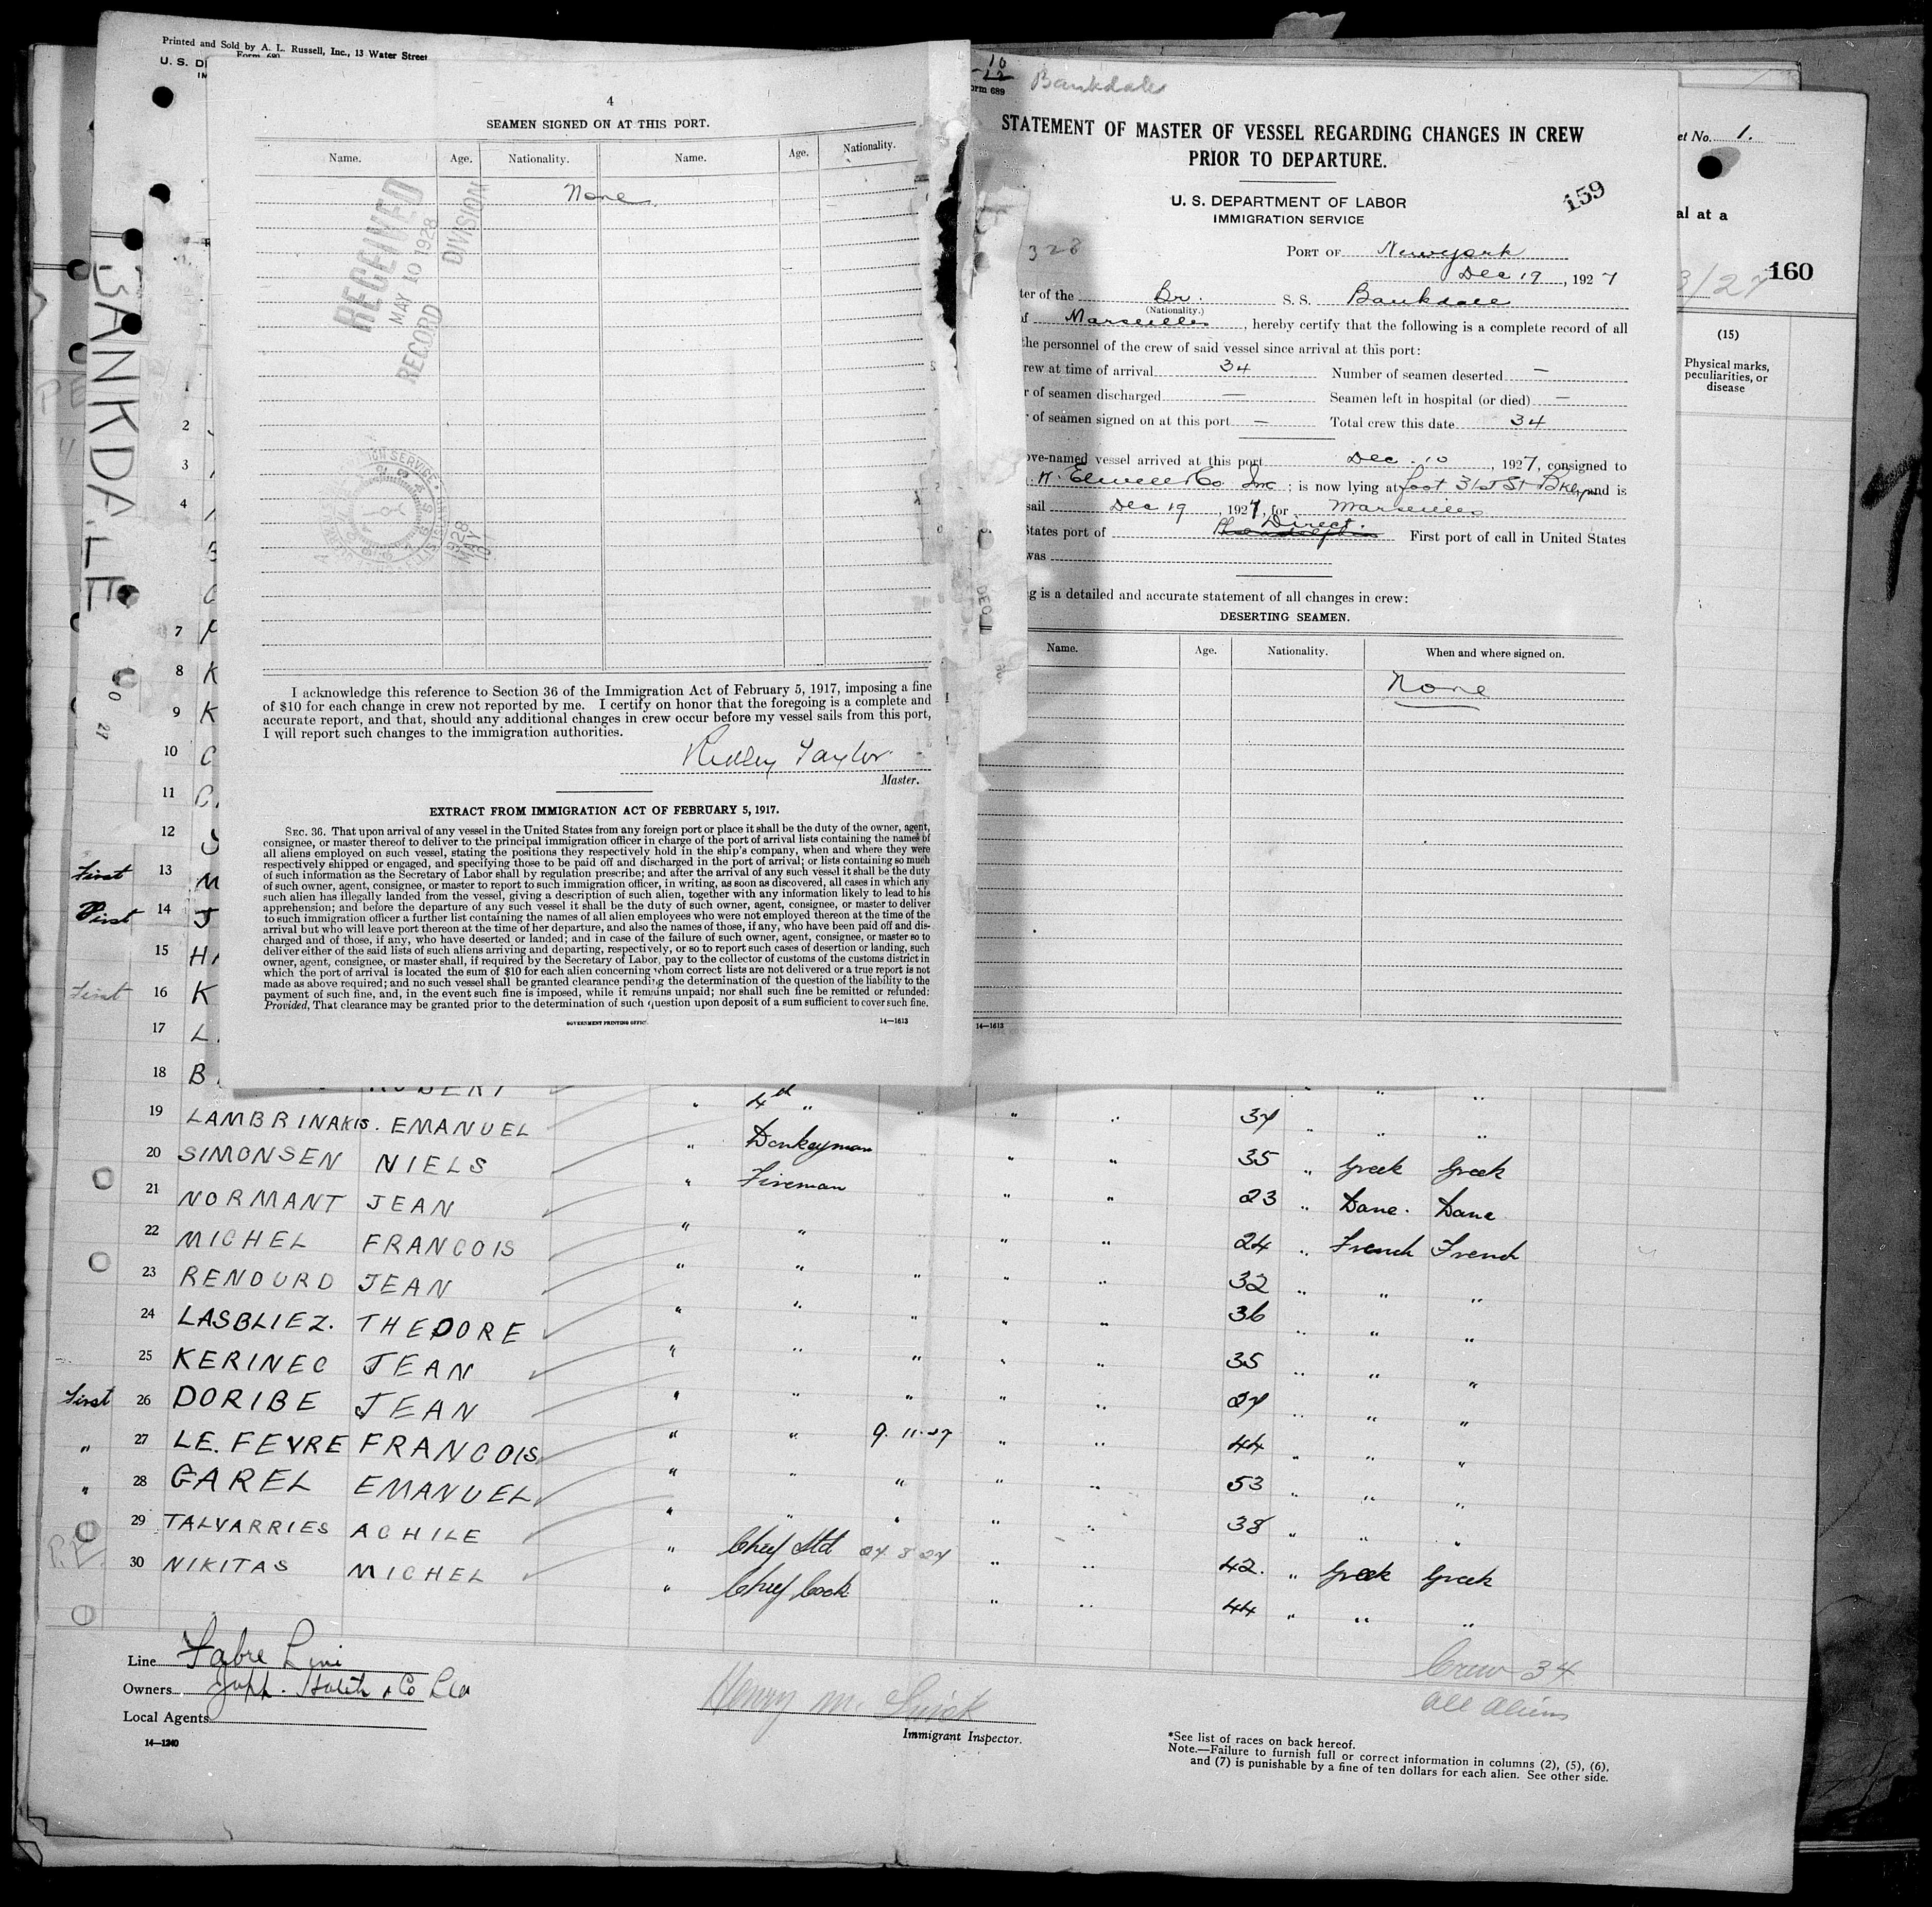 Printed and Sold by A. L. Russell, Inc., 13 Water Street
Form 680
U. S. D
IM
BANKDALE
4
SEAMEN SIGNED ON AT THIS PORT.
Name. Age. Nationality. Name. Age. Nationality.
None.
RECEIVED
MAY 10 1928
RECORD DIVISION
I acknowledge this reference to Section 36 of the Immigration Act of February 5, 1917, imposing a fine
of $10 for each change in crew not reported by me. I certify on honor that the foregoing is a complete and
accurate report, and that, should any additional changes in crew occur before my vessel sails from this port,
I will report such changes to the immigration authorities.
Ridley Taylor
Master.
EXTRACT FROM IMMIGRATION ACT OF FEBRUARY 5, 1917.
SEC. 36. That upon arrival of any vessel in the United States from any foreign port or place it shall be the duty of the owner, agent,
consignee, or master thereof to deliver to the principal immigration officer in charge of the port of arrival lists containing the names of
all aliens employed on such vessel, stating the positions they respectively hold in the ship's company, when and where they were
respectively shipped or engaged, and specifying those to be paid off and discharged in the port of arrival; or lists containing so much
of such information as the Secretary of Labor shall by regulation prescribe; and after the arrival of any such vessel it shall be the duty
of such owner, agent, consignee, or master to report to such immigration officer, in writing, as soon as discovered, all cases in which any
such alien has illegally landed from the vessel, giving a description of such alien, together with any information likely to lead to his
apprehension; and before the departure of any such vessel it shall be the duty of such owner, agent, consignee, or master to deliver
to such immigration officer a further list containing the names of all alien employees who were not employed thereon at the time of the
arrival but who will leave port thereon at the time of her departure, and also the names of those, if any, who have been paid off and dis-
charged and of those, if any, who have deserted or landed; and in case of the failure of such owner, agent, consignee, or master so to
deliver either of the said lists of such aliens arriving and departing, respectively, or so to report such cases of desertion or landing, such
owner, agent, consignee, or master shall, if required by the Secretary of Labor, pay to the collector of customs of the customs district in
which the port of arrival is located the sum of $10 for each alien concerning whom correct lists are not delivered or a true report is not
made as above required; and no such vessel shall be granted clearance pending the determination of the question of the liability to the
payment of such fine, and, in the event such fine is imposed, while it remains unpaid; nor shall such fine be remitted or refunded:
Provided, That clearance may be granted prior to the determination of such question upon deposit of a sum sufficient to cover such fine.
GOVERNMENT PRINTING OFFIC 14—1613
10
22
orm 689
Bankdale
STATEMENT OF MASTER OF VESSEL REGARDING CHANGES IN CREW
PRIOR TO DEPARTURE.
U. S. DEPARTMENT OF LABOR
IMMIGRATION SERVICE
159
328
PORT OF Newyork
Dec 19, 1927
ter of the Br. S. S. Bankdale
(Nationality.)
of Marseilles, hereby certify that the following is a complete record of all
the personnel of the crew of said vessel since arrival at this port:
rew at time of arrival 34 Number of seamen deserted —
r of seamen discharged — Seamen left in hospital (or died) —
r of seamen signed on at this port — Total crew this date 34
ove-named vessel arrived at this port Dec. 10, 1927, consigned to
W. Elwell & Co. Inc; is now lying at foot 31st St Bkly and is
sail Dec 19, 1927, for Marseilles
Direct.
States port of Philadelphia First port of call in United States
was
g is a detailed and accurate statement of all changes in crew:
DESERTING SEAMEN.
Name. Age. Nationality. When and where signed on.
None
14—1613
et No. 1.
al at a
3/27 160
(15)
Physical marks, peculiarities, or disease
1
2
3
4
7
8 K
9 K
10 C
11
12
First 13 M
First 14 J
15 HA
First 16 K
17 L
18 B ROBERT 4th " 37
19 LAMBRINAKIS. EMANUEL " Donkeyman " " 35 " Greek Greek
20 SIMONSEN NIELS " Fireman " " 23 " Dane. Dane
21 NORMANT JEAN " " " " 24 " French French
22 MICHEL FRANCOIS " " " " " 32 " " "
23 RENOURD JEAN " " " " " 36 " " "
24 LASBLIEZ. THEDORE " " " " " 35 " " "
25 KERINEC JEAN " " " " " 27 " " "
First 26 DORIBE JEAN " " 9. 11. 27 " " 44 " " "
" 27 LE. FEVRE FRANCOIS " " " " " 53 " " "
" 28 GAREL EMANUEL " " " " " 38 " " "
29 TALVARRIES ACHILE " Chief Std 27 8 27 " " 42. " Greek Greek
30 NIKITAS MICHEL " Chief Cook " " 44 " " "
Line Fabre Line
Owners
Local Agents
14—1240
Henry M.
Immigrant Inspector.
Crew 34
all aliens
*See list of races on back hereof.
Note.—Failure to furnish full or correct information in columns (2), (5), (6),
and (7) is punishable by a fine of ten dollars for each alien. See other side.